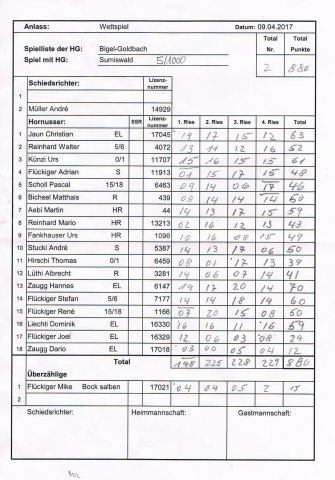 Anlass: Wettspiel Datum: 09.04.2017
Spielliste der HG: Bigel-Goldbach Total Total
Spiel mit HG: Sumiswald 5/1000 Nr. Punkte
2 880
Schiedsrichter: Lizenz-nummer
1
2 Müller André 14929
Hornusser: SSR Lizenz-nummer 1. Ries 2. Ries 3. Ries 4. Ries Total
1 Jaun Christian EL 17045 19 17 15 12 63
2 Reinhard Walter 5/6 4072 13 11 12 16 52
3 Künzi Urs 0/1 11707 15 16 15 15 61
4 Flückiger Adrian S 11913 01 15 17 15 48
5 Scholl Pascal 15/18 6463 09 14 06 17 46
6 Bichsel Matthais R 439 08 14 14 14 50
7 Aebi Martin HR 44 14 13 17 15 59
8 Reinhard Mario HR 13213 02 16 12 13 43
9 Fankhauser Urs HR 1096 10 16 08 15 49
10 Stucki André S 5387 14 13 17 06 50
11 Hirschi Thomas 0/1 6459 08 01 17 13 39
12 Lüthi Albrecht R 3281 14 06 07 14 41
13 Zaugg Hannes EL 6147 19 17 20 14 70
14 Flückiger Stefan 5/6 7177 14 14 18 14 60
15 Flückiger René 15/18 1166 07 20 15 08 50
16 Liechti Dominik EL 16330 16 16 11 16 59
17 Flückiger Joel EL 16329 12 06 03 08 29
18 Zaugg Dario EL 17018 03 00 05 04 12
Total 198 225 228 229 880
Überzählige
1 Flückiger Mike Bock salben 17021 04 04 05 2 15
2
Schiedsrichter: Heimmannschaft: Gastmannschaft: